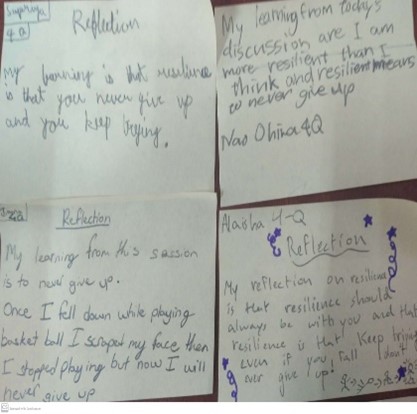 Supriya
4 Q
Reflection
My learning is that resilience
is that you never give up
and you keep trying.
My learning from today's
discussion are I am
more resilient than I
think and resilient means
to never give up
Nao Ohira 4Q
4a
Reflection
My learning from this session
is to never give up.
Once I fell down while playing
basket ball I scraped my face then
I stopped playing but now I will
never give up
4-Q
Reflection
My reflection on resilience
is that resilience should
always be with you and that
resilience is that Keep trying
Even if you fall don't
ever give up!